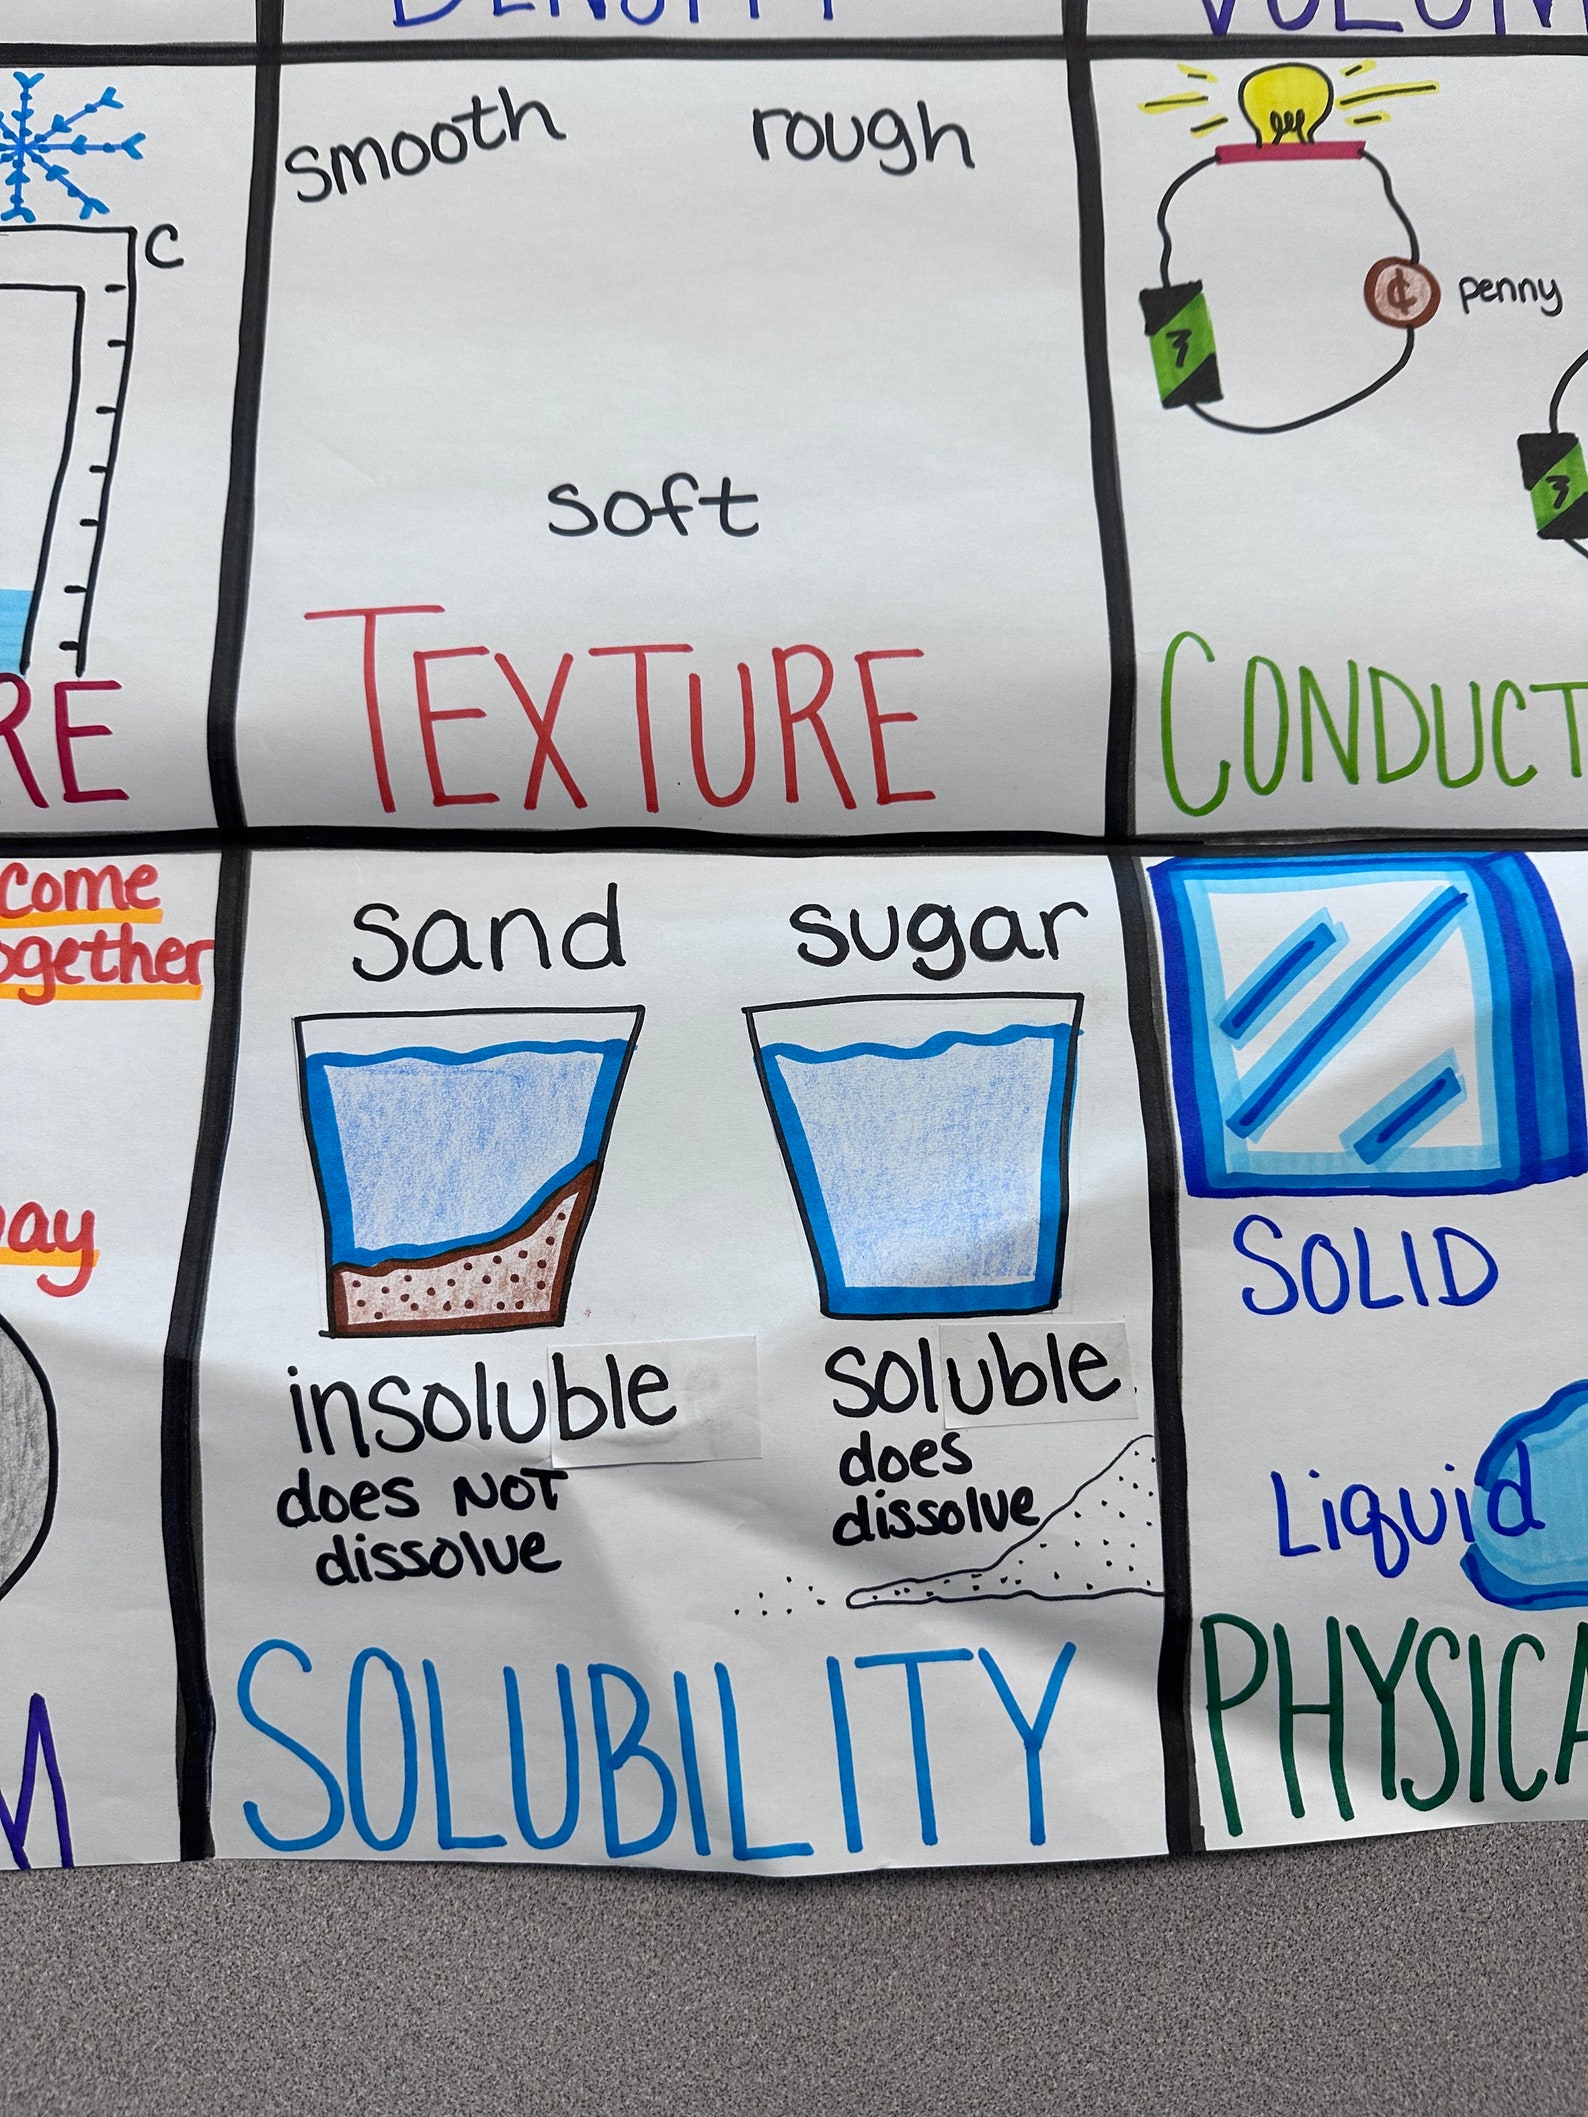 DENSITY
smooth
rough
soft
TEXTURE
C
RE
¢
penny
3
3
CONDUCT
come
ogether
ay
M
sand
sugar
insoluble
does NOT
dissolve
soluble
does
dissolve
SOLUBILITY
SOLID
Liquid
PHYSICA